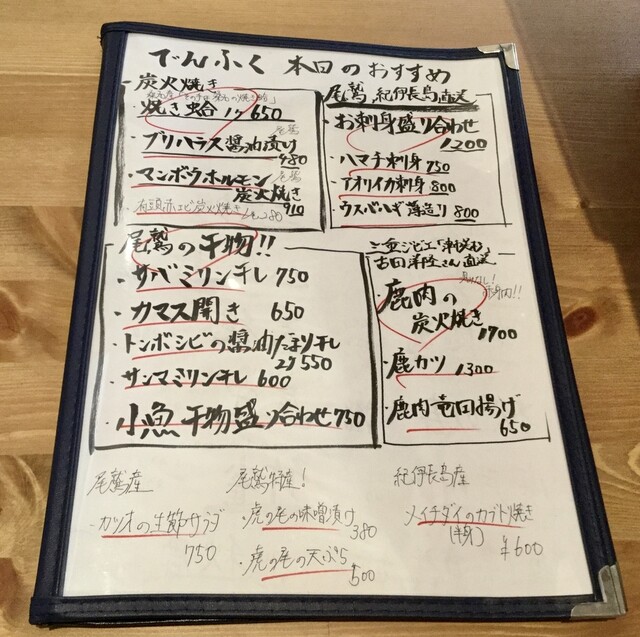 でんふく 本日のおすすめ
炭火焼き
・焼き蛤 1ケ 650
尾鷲
・ブリハラス醤油漬け
980
尾鷲
・マンボウホルモン
炭火焼き
910
有頭赤エビ炭火焼き 280
尾鷲、紀伊長島直送
・お刺身盛り合わせ
1200
・ハマチ刺身 750
・アオリイカ刺身 800
・ウスバハギ薄造り 800
尾鷲の干物!!
・サバミリン干し 750
・カマス開き 650
・トンボシビの醤油たまり干し
550
・サンマミリン干し 600
・小魚干物盛り合わせ 750
三重ジビエ
古田洋隆さん直送
・鹿肉の
炭火焼き
1700
・鹿カツ 1300
・鹿肉竜田揚げ
650
尾鷲産
・カツオの生節サラダ
750
尾鷲特産!
・虎の尾の味噌漬け
380
・虎の尾の天ぷら
500
紀伊長島産
・メイチダイのカブト焼き
(半身)
¥600